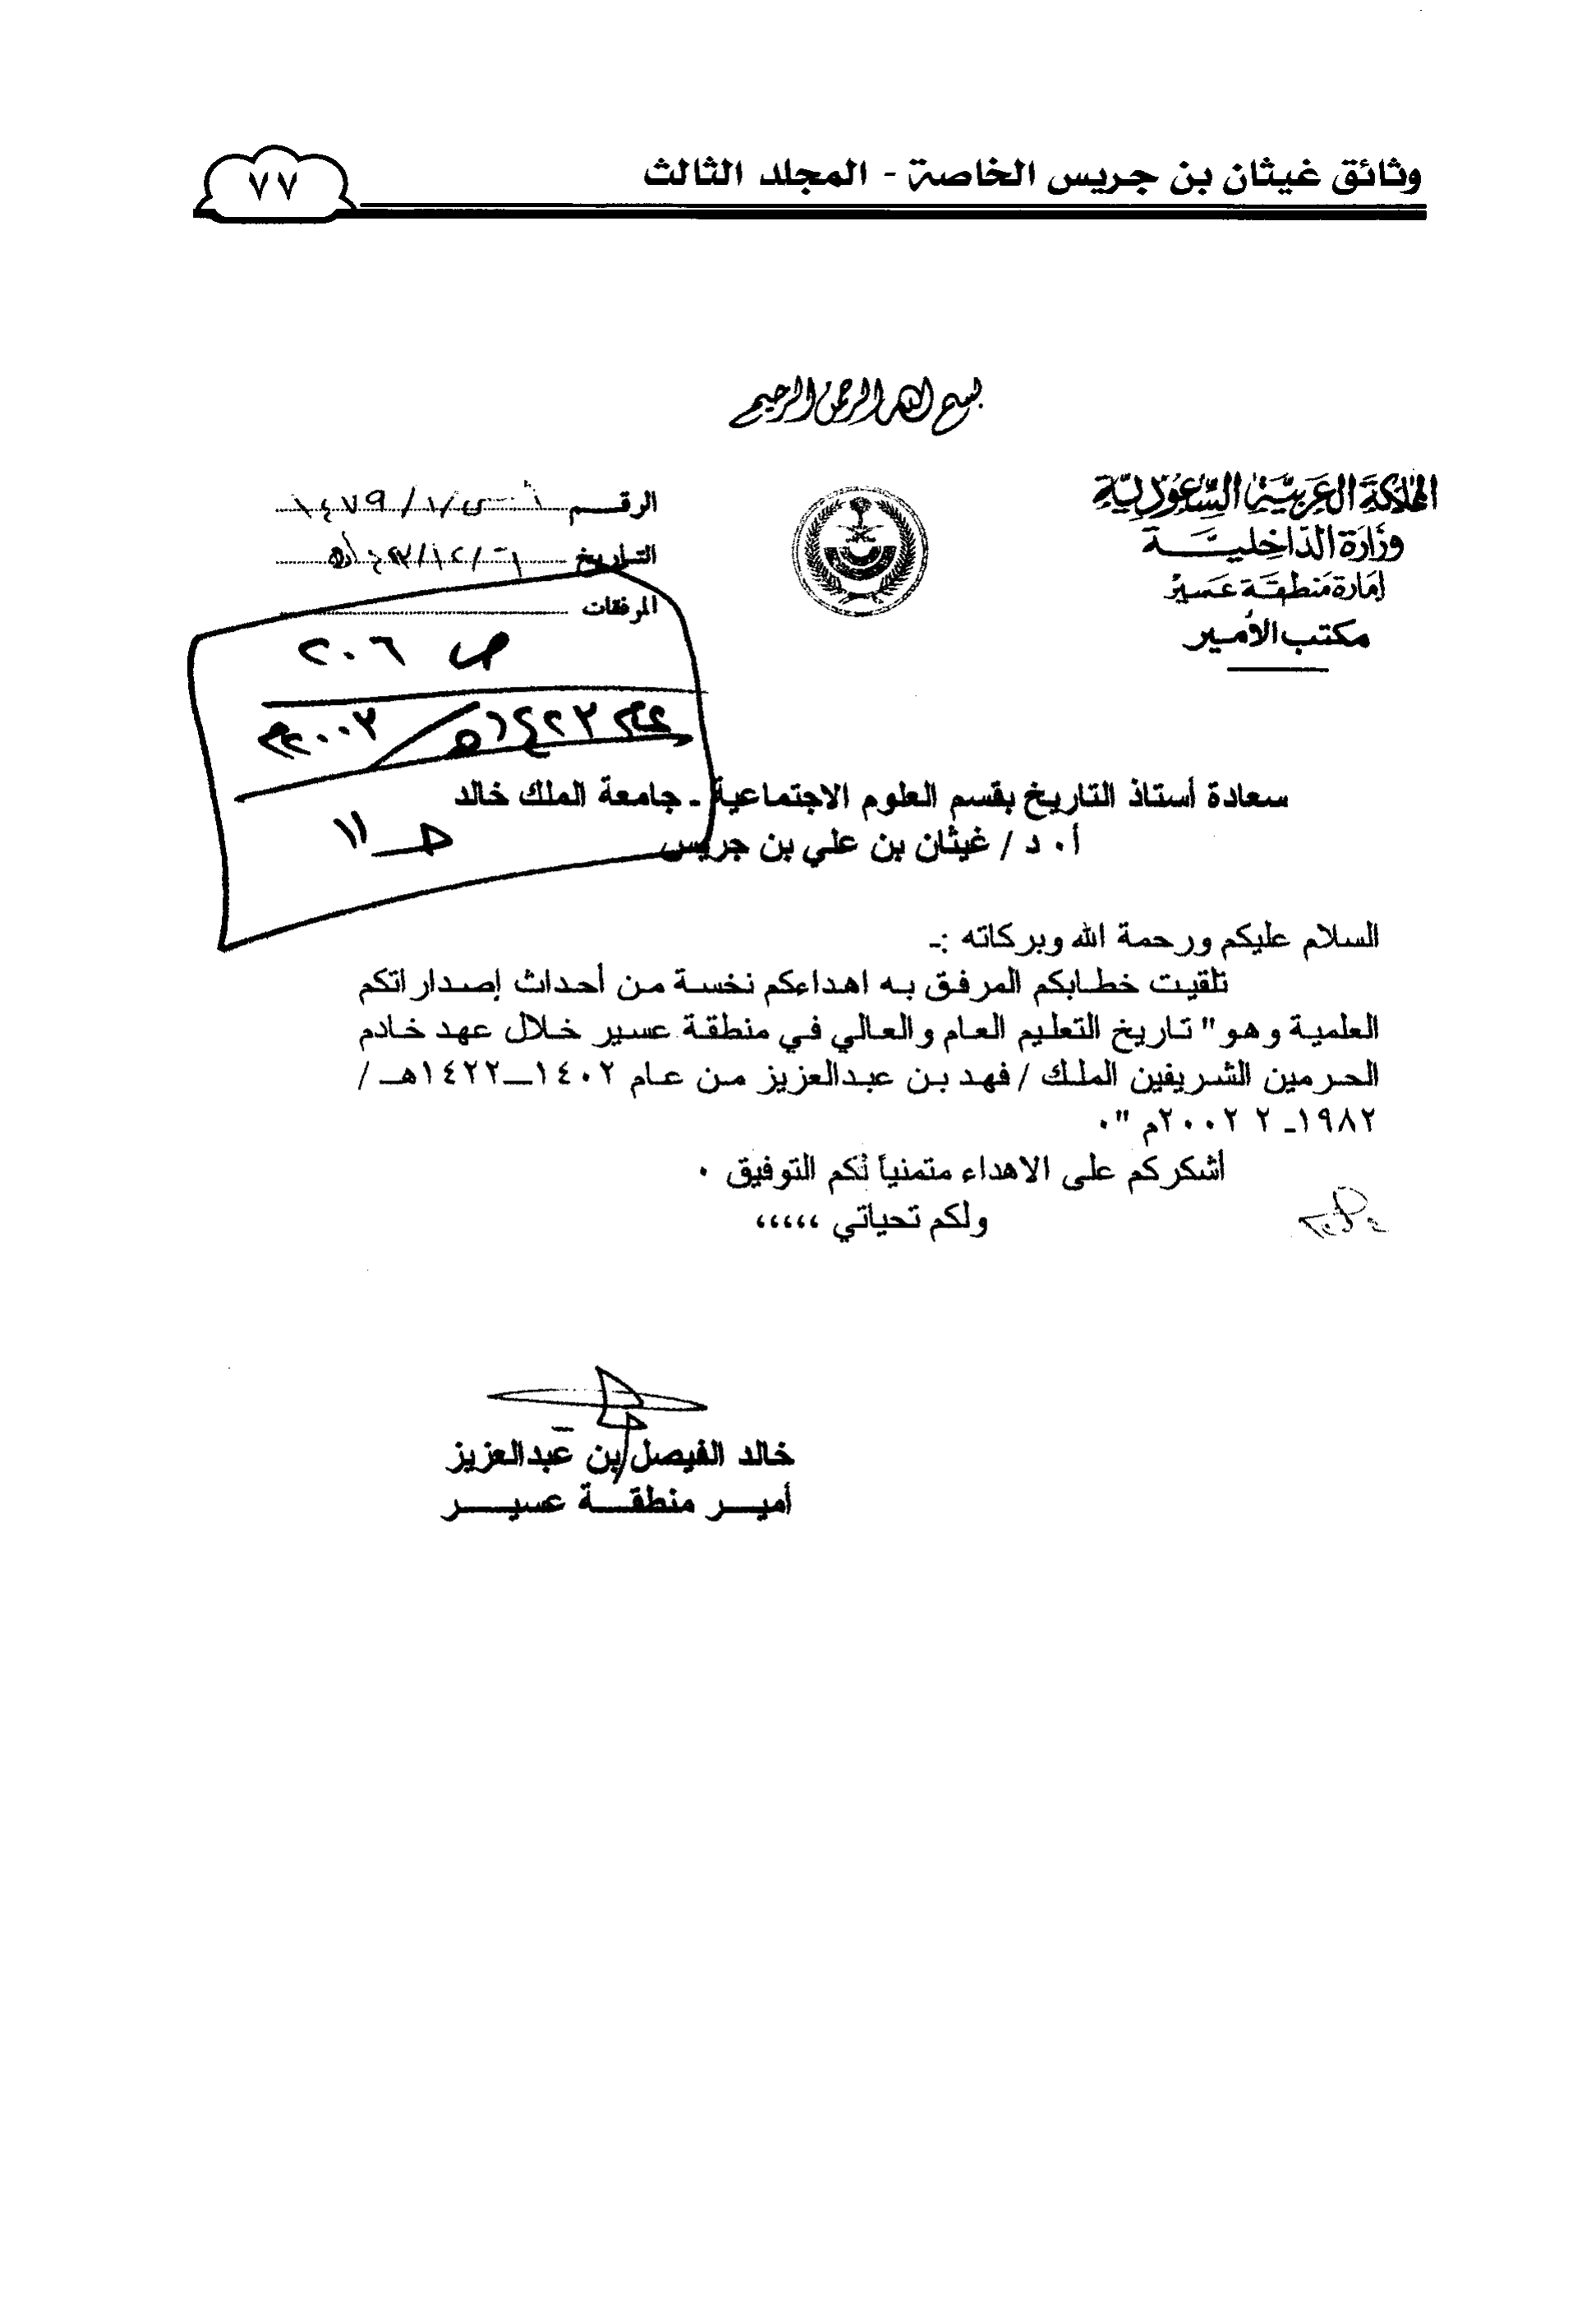 وثائق غيثان بن جريس الخاصة - المجلد الثالث
٧٧
بسم الله الرحمن الرحيم
المملكة العربية السعودية
وزارة الداخلية
إمارة منطقة عسير
مكتب الأمير
الرقم
التاريخ
المرفقات
ص ٢٠٦
عام ١٤٢٣هـ / ٢٠٠٣م
سعادة أستاذ التاريخ بقسم العلوم الاجتماعية ـ جامعة الملك خالد
أ٠ د / غيثان بن علي بن جريس
السلام عليكم ورحمة الله وبركاته :ـ
تلقيت خطابكم المرفق به اهداءكم نخسة من أحداث إصداراتكم
العلمية وهو" تاريخ التعليم العام والعالي في منطقة عسير خلال عهد خادم
الحرمين الشريفين الملك / فهد بن عبدالعزيز من عام ١٤٠٢ـ١٤٢٢هـ /
١٩٨٢ـ ٢ ٢٠٠٢م "٠
أشكركم على الاهداء متمنياً لكم التوفيق ٠
ولكم تحياتي ،،،،،
خالد الفيصل بن عبدالعزيز
أمير منطقة عسير